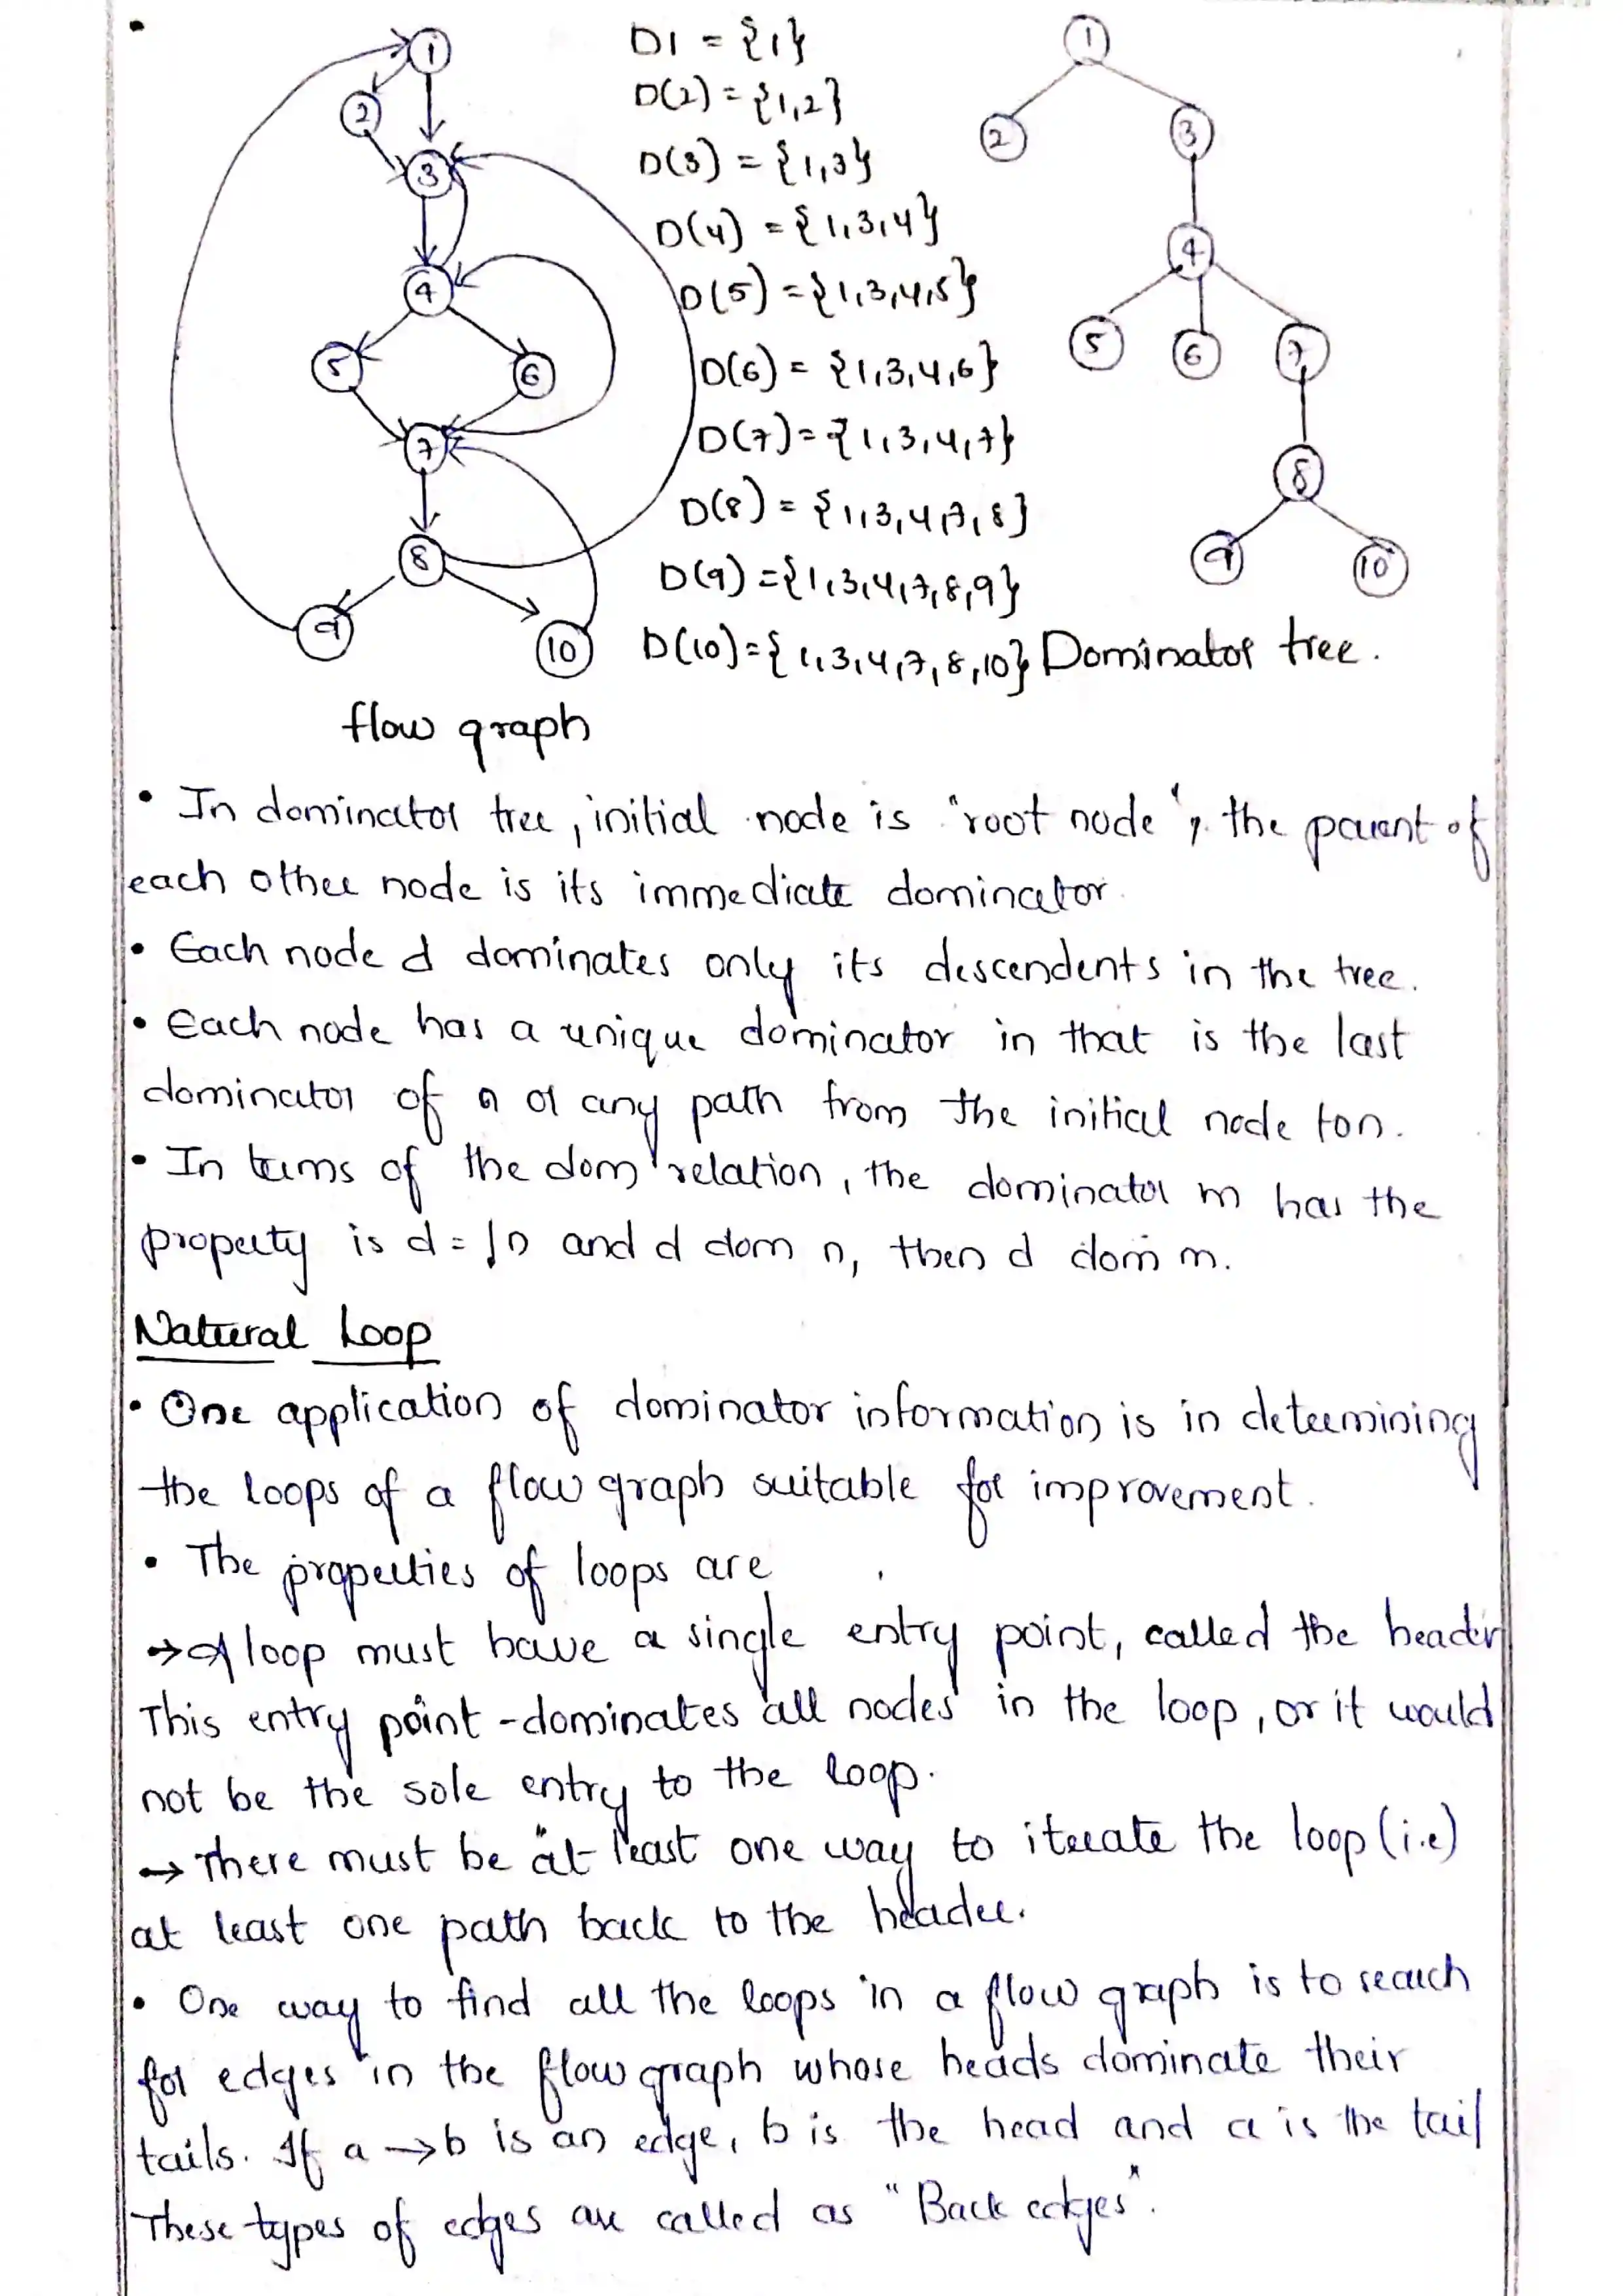 1
2
3
4
5
6
7
8
9
10
flow graph
D1 = {1}
D(2) = {1,2}
D(3) = {1,3}
D(4) = {1,3,4}
D(5) = {1,3,4,5}
D(6) = {1,3,4,6}
D(7) = {1,3,4,7}
D(8) = {1,3,4,7,8}
D(9) = {1,3,4,7,8,9}
D(10) = {1,3,4,7,8,10}
1
2
3
4
5
6
7
8
9
10
Dominator tree.
• In dominator tree, initial node is "root node", the parent of
each other node is its immediate dominator.
• Each node d dominates only its descendents in the tree.
• Each node has a unique dominator in that is the last
dominator of n or any path from the initial node to n.
• In terms of the dom relation, the dominator m has the
property is d = ! n and d dom n, then d dom m.
Natural Loop
• One application of dominator information is in determining
the loops of a flow graph suitable for improvement.
• The properties of loops are
→ A loop must have a single entry point, called the header
This entry point - dominates all nodes in the loop, or it would
not be the sole entry to the loop.
→ There must be at least one way to iterate the loop (i.e)
at least one path back to the header.
• One way to find all the loops in a flow graph is to search
for edges in the flow graph whose heads dominate their
tails. If a → b is an edge, b is the head and a is the tail
These types of edges are called as "Back edges".